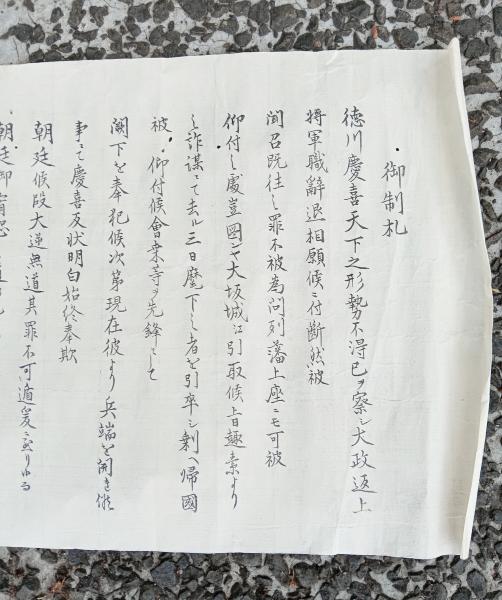 御制札
徳川慶喜天下之形勢不得已ヲ察シ大政返上
将軍職辭退相願候ニ付断然被
聞召既往之罪不被為問列藩上座ニモ可被
仰付之處豈圖ンヤ大坂城江引取候上旨趣素より
之詐謀ニて去ル三日麾下之者を引率シ剰へ帰國
被 仰付候會桒等ヲ先鋒ニて
闕下を奉犯候次第現在彼より兵端を開き候
事ニて慶喜反状明白始終奉欺
朝廷候段大逆無道其罪不可遁爰ニ至り
朝廷御宥恕